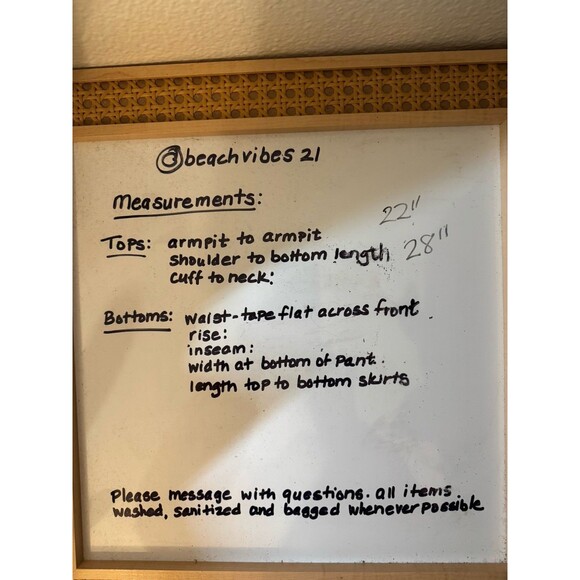 @beachvibes21
Measurements:
Tops: armpit to armpit 22"
shoulder to bottom length 28"
cuff to neck:
Bottoms: waist-tape flat across front
rise:
inseam:
width at bottom of pant.
length top to bottom skirts
Please message with questions. all items
washed, sanitized and bagged whenever possible